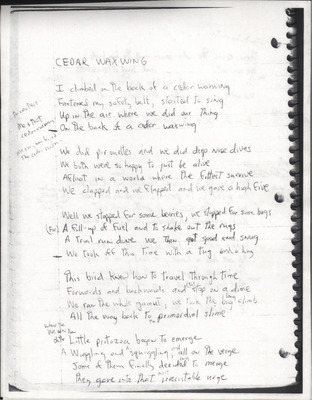 CEDAR WAXWING
I climbed on the back of a cedar waxwing
Fastened my safety belt, started to sing
Up in the air where we did our thing
On the back of a cedar waxwing
We did pirouettes and we did deep nose dives
We both were so happy to just be alive
Afloat in a world where the fittest survive
We clapped and we flapped and we gave a high five
Well we stopped for some berries, we stopped for some bugs
(For) A fill-up of fuel and to shake out the rugs
A trial run dive we then got good and snug
We took off this time with a tug and a hug
This bird knew how to travel through time
Forwards and backwards and stop on a dime
We ran the whole gamut, we took the long climb
All the way back to primordial slime
Little protozoa began to emerge
A Wiggling and squiggling and all on the verge
Some of them finally decided to merge
They gave into that irresistable urge